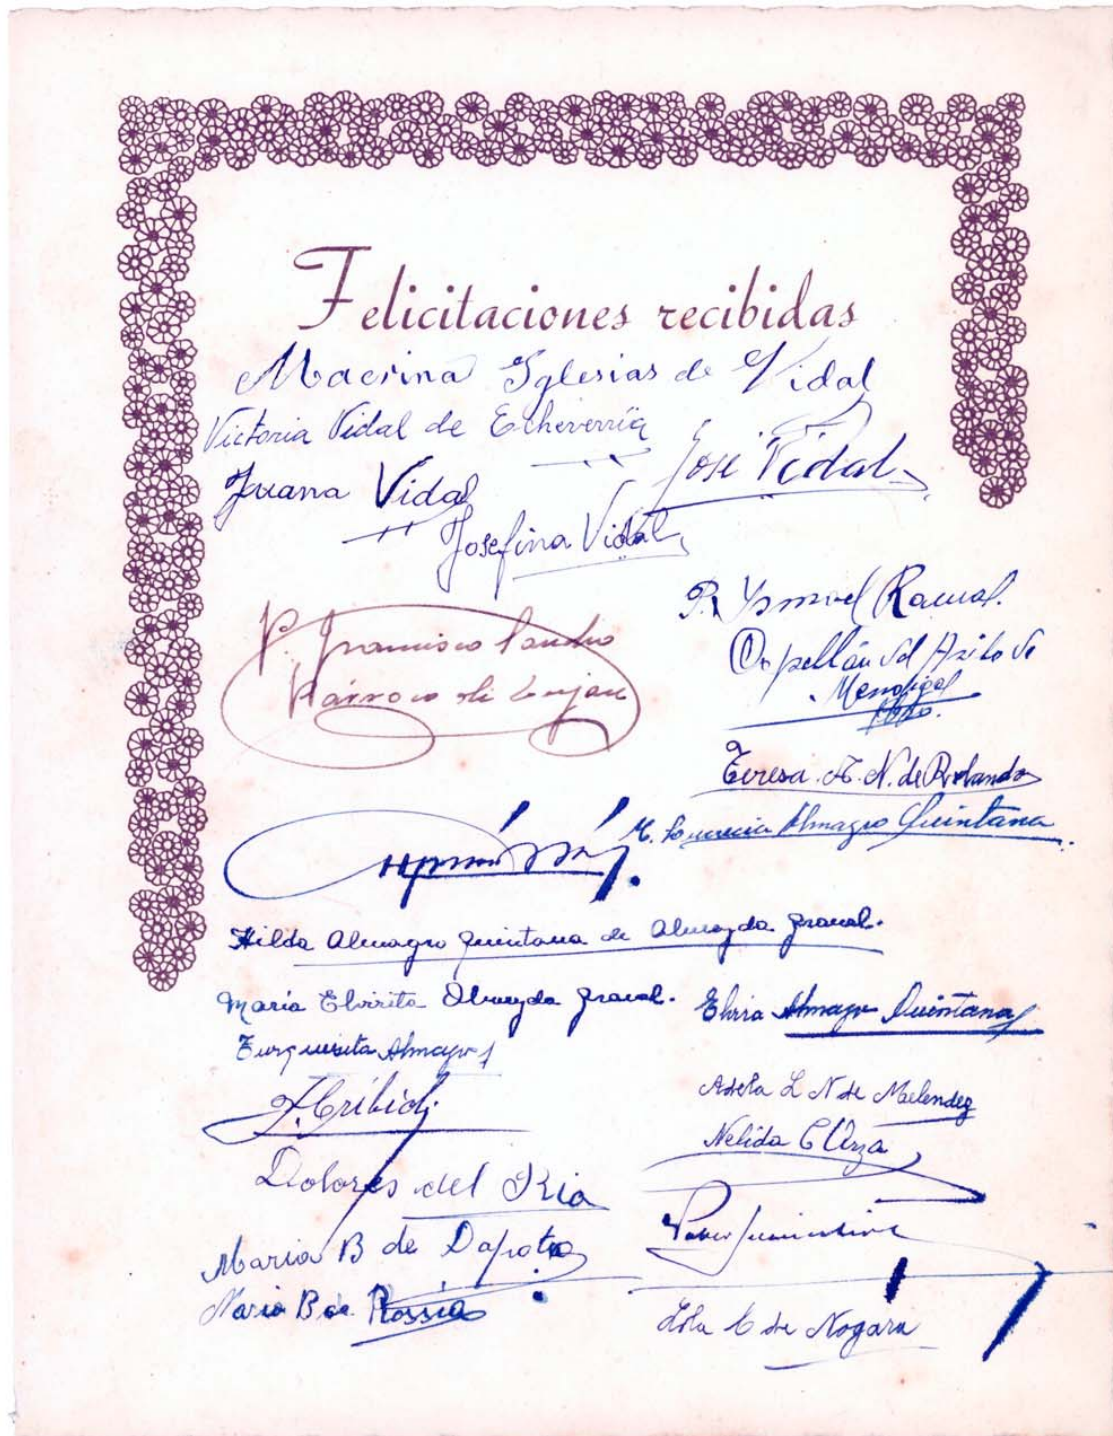 Felicitaciones recibidas
Macrina Iglesias de Vidal
Victoria Vidal de Echeverría
José Vidal
Juana Vidal
Josefina Vidal
P. Francisco
Párroco de Lujan
P. Ysmael
Capellán del Asilo de
Teresa A. N. de Rolando
M. Almagro Quintana
Hilda Almagro Quintana de Almeyda
María Elvirita Almeyda
Elvira Almagro Quintana
Turquesita Almagro
Adela L N de Melendez
Nelida C
Dolores del Rio
Maria B de Dapoto
Maria B de Rossia
Lola C de Nogara